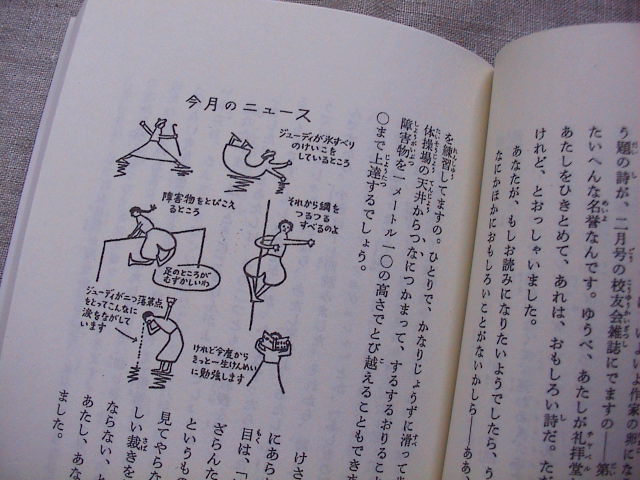 いよ作家の卵にな
う題の詩が、二月号の校友会雑誌にでますの――第
たいへんな名誉なんです。ゆうべ、あたしが礼拝堂
あたしをひきとめて、あれは、おもしろい詩だ。ただ
けれど、とおっしゃいました。
あなたが、もしお読みになりたいようでしたら、う
なにかほかにおもしろいことがないかしら――ああ、
を練習してますの。ひとりで、かなりじょうずに滑って
体操場の天井からつなにつかまって、するするおりること
障害物を一メートル一〇の高さでとび越えることもでき
〇まで上達するでしょう。
今月のニュース
ジューディが氷すべり
のけいこを
しているところ
障害物をとびこえ
るところ
足のところが
むずかしいわ
それから綱を
つるつる
すべるのよ
ジューディが二つ落第点
をとってこんなに
涙をながして
います
けれど今度から
きっと一生けんめい
に勉強します
けさ
にあら
目は、「
ざらんた
というもの
見てやらな
しい裁きを
ならない、と
あたし、あな
ました。